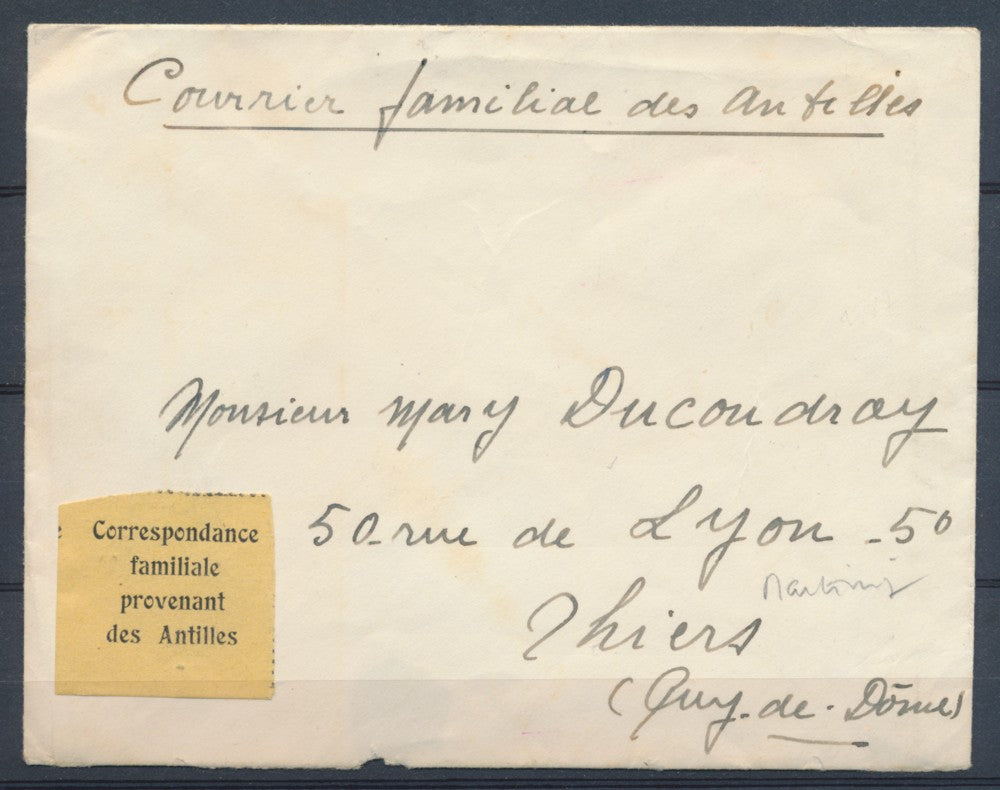 Courrier familial des Antilles
Monsieur Mary Ducoudray
50 - rue de Lyon - 50
Thiers
(Puy-de-Dôme)
Correspondance
familiale
provenant
des Antilles